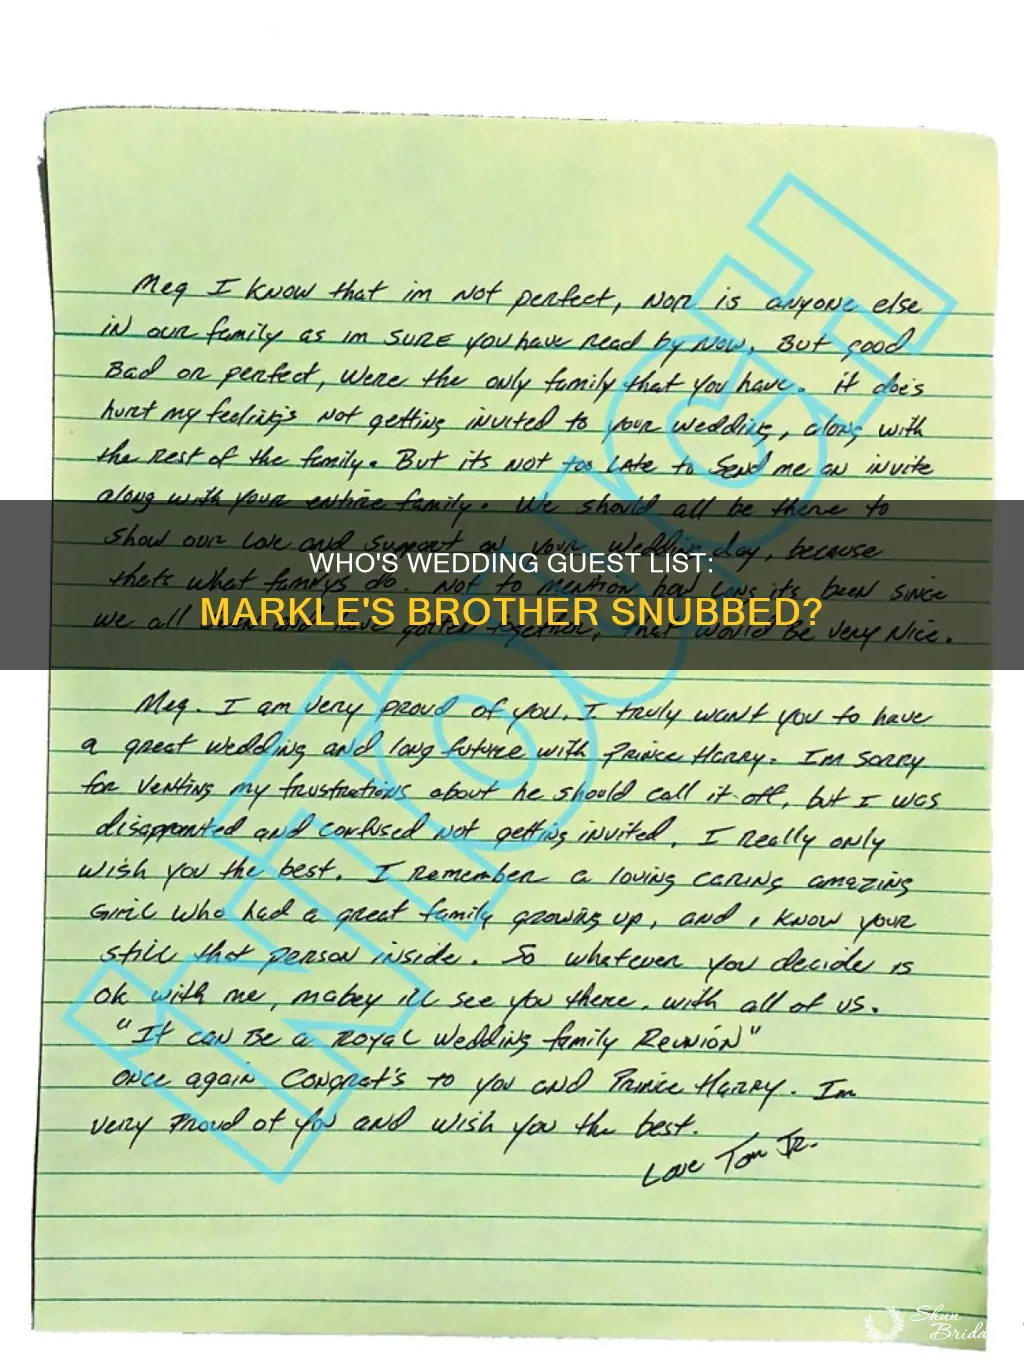 Meg I know that im not perfect, nor is anyone else
in our family as im sure you have read by now. But good
Bad or perfect, were the only family that you have. it does
hurt my feelings not getting invited to your wedding, along with
the rest of the family. But its not too late to send me an invite
along with your entire family. We should all be there to
show our love and support on your wedding day, because
WHO'S WEDDING GUEST LIST:
thats what familys do. Not to mention how long its been since
MARKLE'S BROTHER SNUBBED?
we all have gotten together, that would be very nice.
Meg. I am very proud of you. I truly want you to have
a great wedding and long future with Prince Harry. Im sorry
for venting my frustrations about he should call it off, but I was
disappointed and confused not getting invited. I really only
wish you the best. I remember a loving caring amazing
Girl who had a great family growing up, and i know your
still that person inside. So whatever you decide is
ok with me, mabey ill see you there. with all of us.
"It can Be a Royal Wedding family Reunion"
once again Congrat's to you and Prince Harry. Im
very Proud of you and wish you the best.
Love Tom Jr.
INTOUCH
Shun
Brida